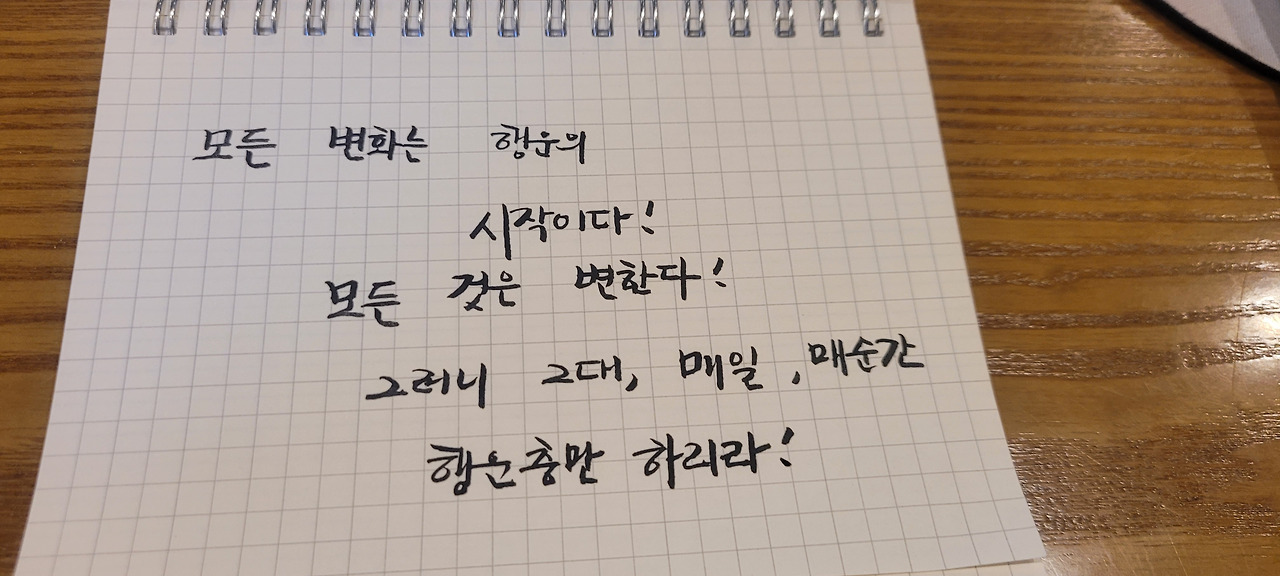 모든 변화는 행운의
시작이다!
모든 것은 변한다!
그러니 그대, 매일, 매순간
행운충만 하리라!